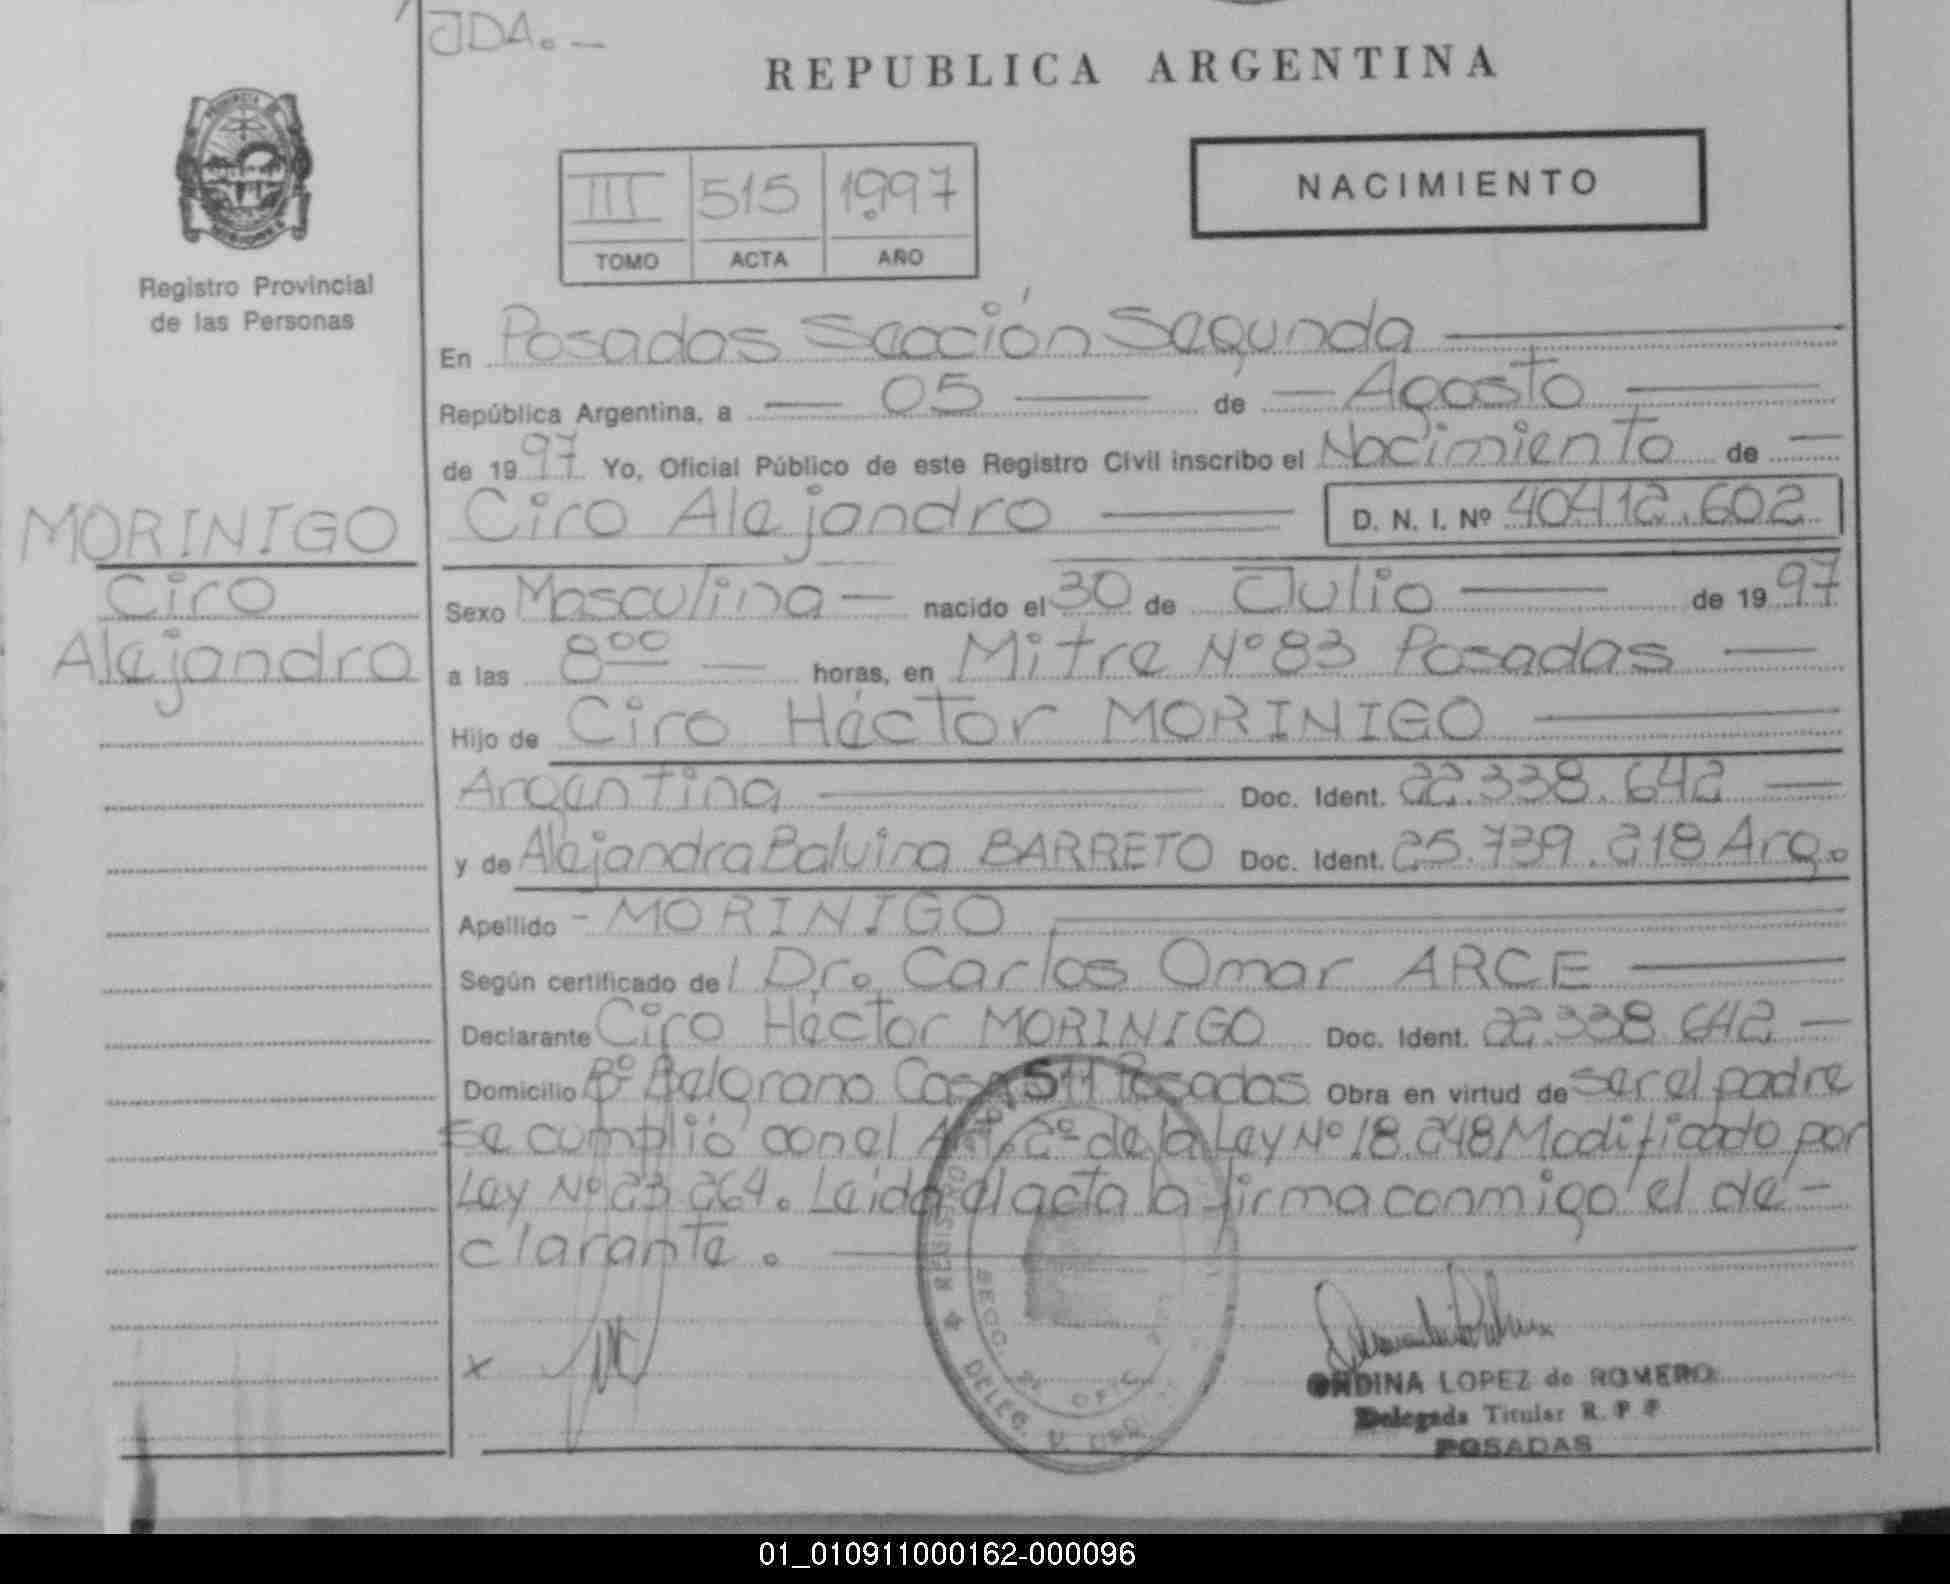 JDA. —
REPUBLICA ARGENTINA
NACIMIENTO
III 515 1997
TOMO ACTA AÑO
Registro Provincial
de las Personas
En Posadas Sección Segunda
República Argentina, a — 05 — de — Agosto —
de 1997 Yo, Oficial Público de este Registro Civil inscribo el Nacimiento de —
MORINIGO
Ciro
Alejandro
Ciro Alejandro — D. N. I. Nº 40412.602
Sexo Masculina — nacido el 30 de Julio — de 1997
a las 8 00 — horas, en Mitre Nº 83 Posadas —
Hijo de Ciro Héctor MORINIGO —
Argentina — Doc. Ident. 22.338.642 —
y de Alejandra Balvina BARRETO Doc. Ident. 25.739.218 Arg.
Apellido - MORINIGO
Según certificado del Dr. Carlos Omar ARCE —
Declarante Ciro Hector MORINIGO Doc. Ident. 22.338.642 —
Domicilio Bº Belgrano Casa 511 Posadas Obra en virtud de ser el padre
Se cumplió con el Art. 2º de la Ley Nº 18.248 Modificado por
Ley Nº 23.264. Leida el acta la firma conmigo el de-
clarante. —
x
REGISTRO
DELEG.
SECC. 2ª OFIC.
ONDINA LOPEZ de ROMERO
Delegada Titular R. P. P
POSADAS
01_010911000162-000096